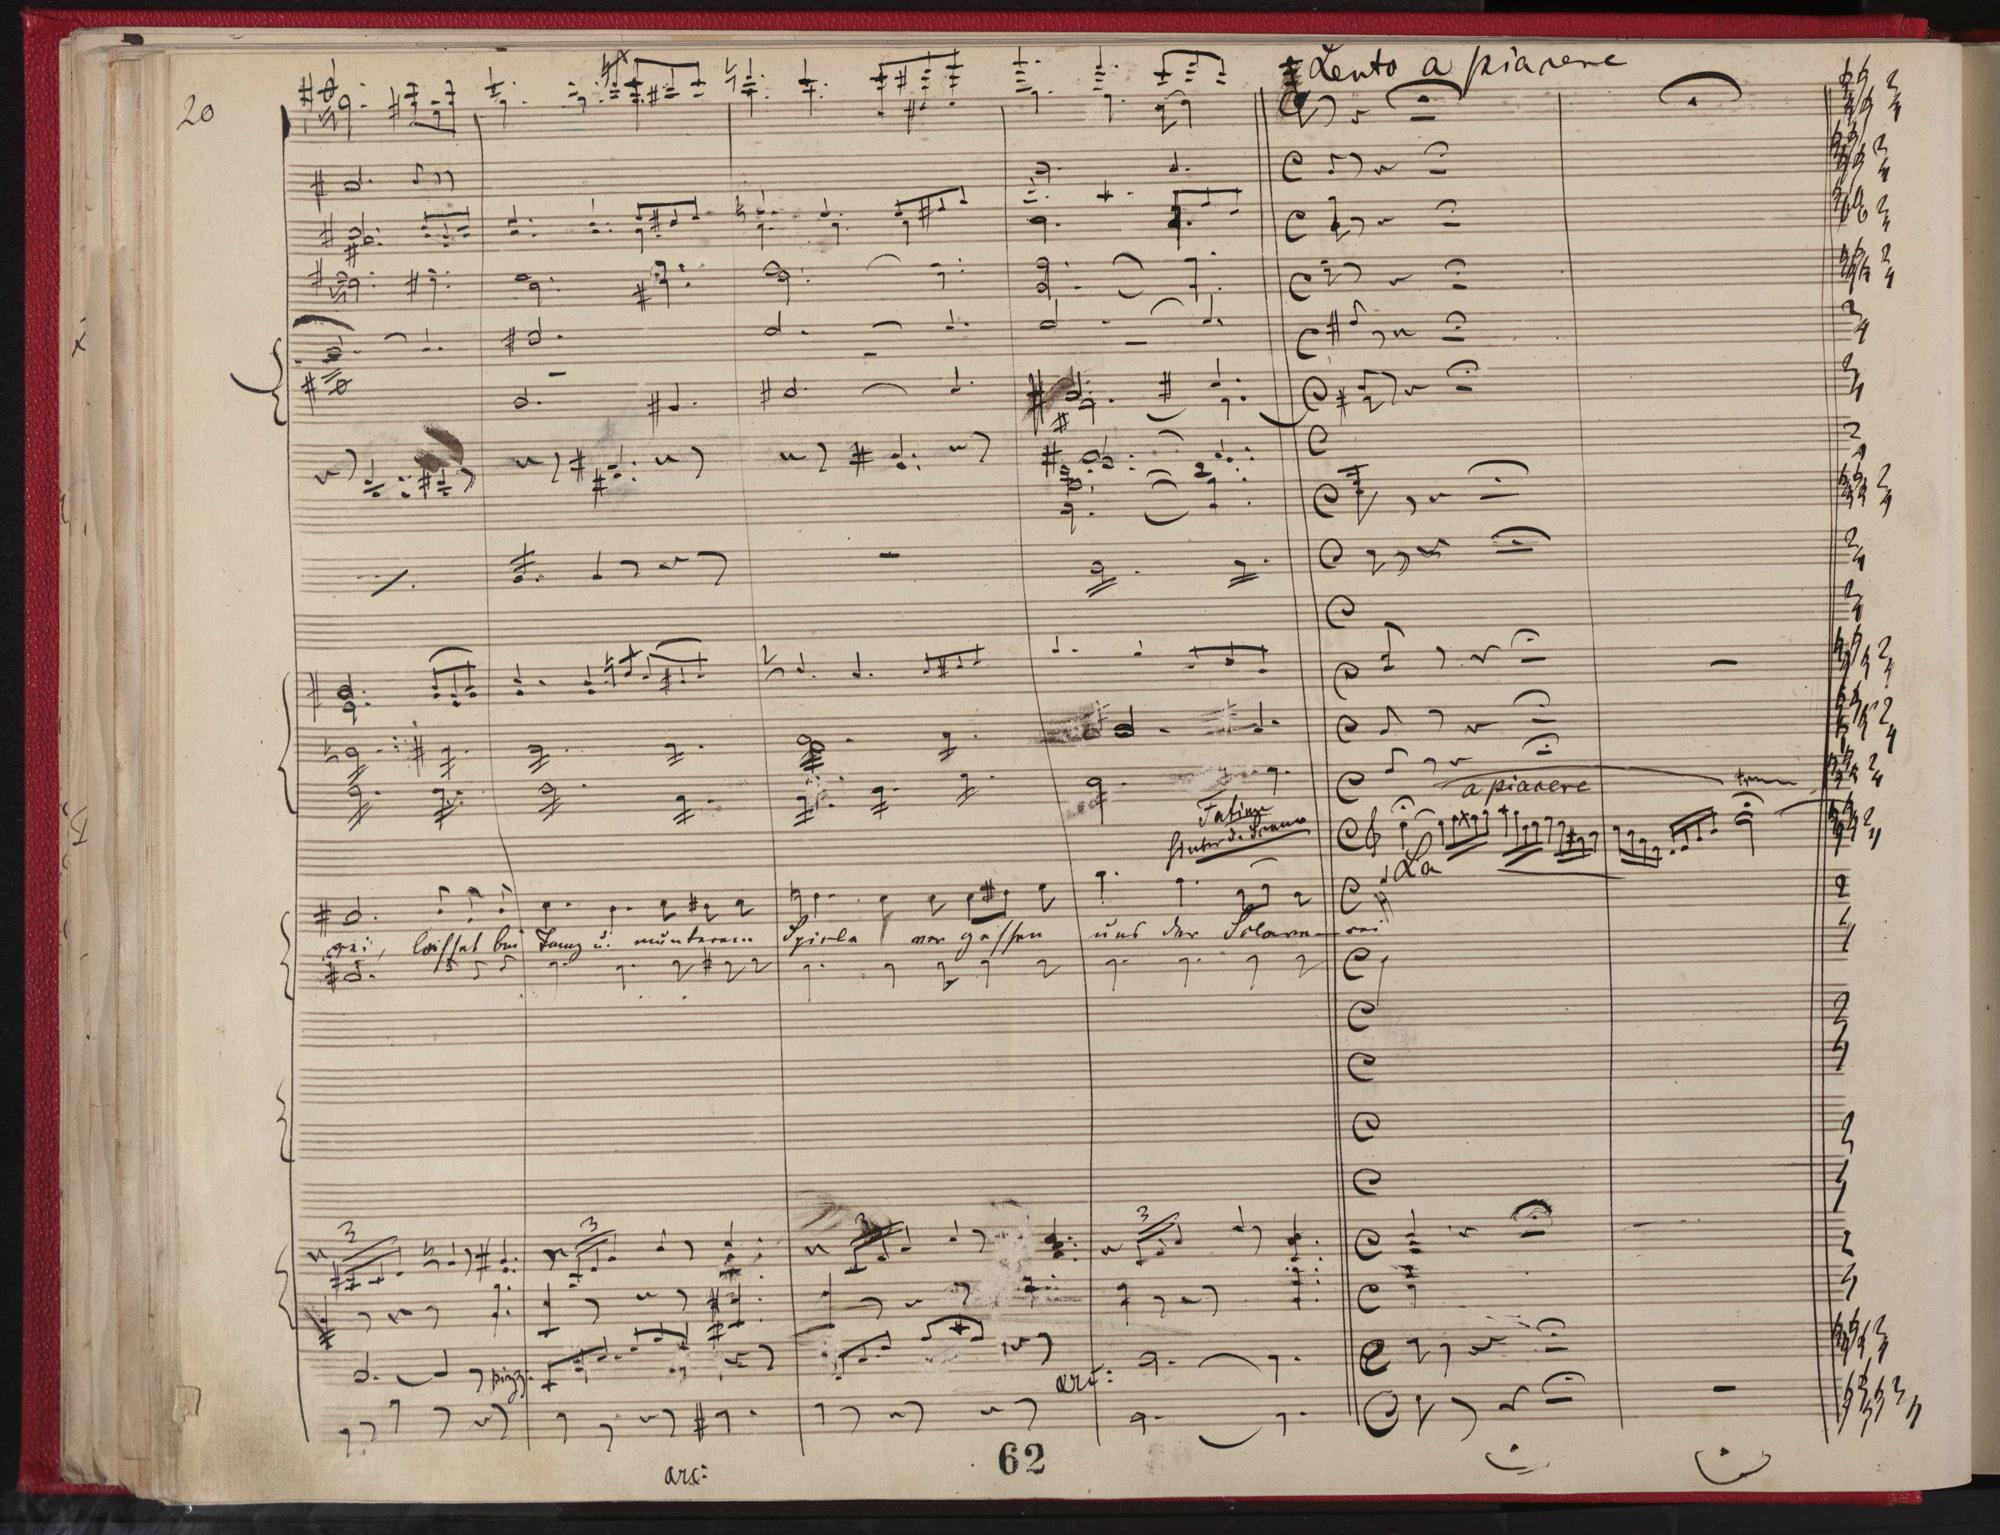 20
Lento a piacere
a piacere
Fatime
hinter d. Scene
La
rei, lasset bei Tanz u. munterem Spiele vergessen uns der Sclaverei
pizz.
arc:
arc:
62